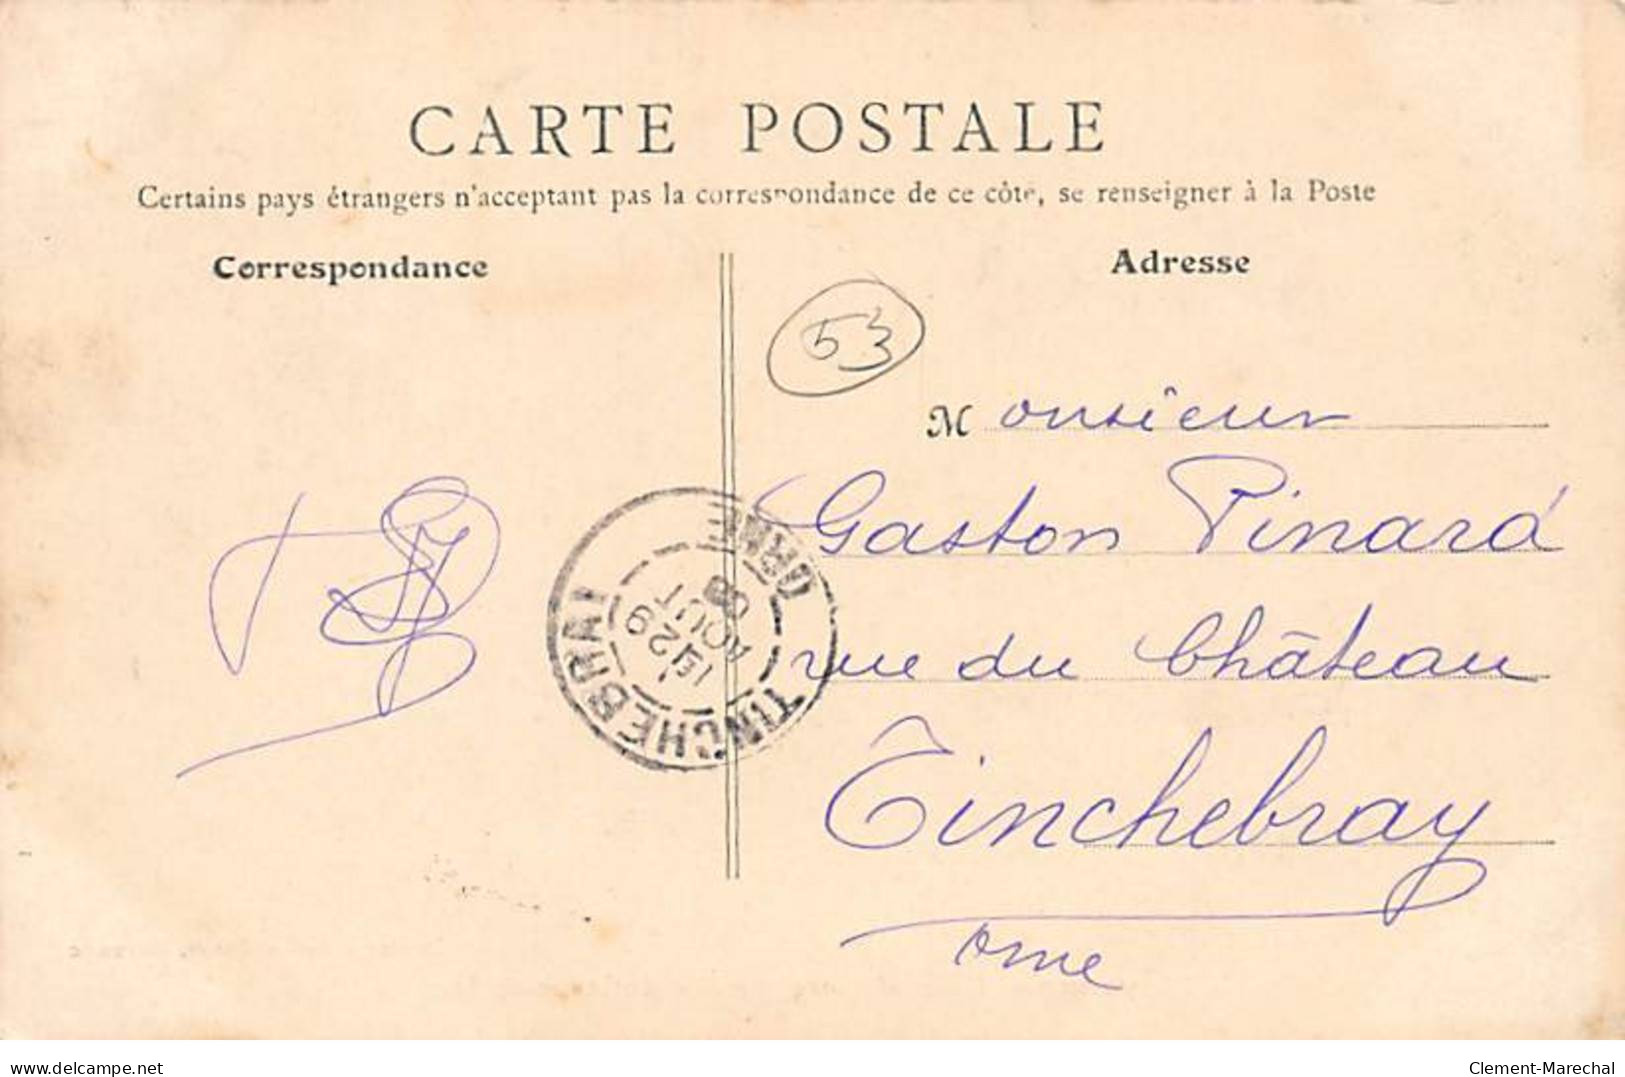 CARTE POSTALE
Certains pays étrangers n'acceptant pas la correspondance de ce côté, se renseigner à la Poste
Correspondance
Adresse
53
Monsieur
Gaston Pinard
rue du Château
Tinchebray
Orne
TINCHEBRAI ORNE
29
AOUT
delcampe.net
Clement-Marechal